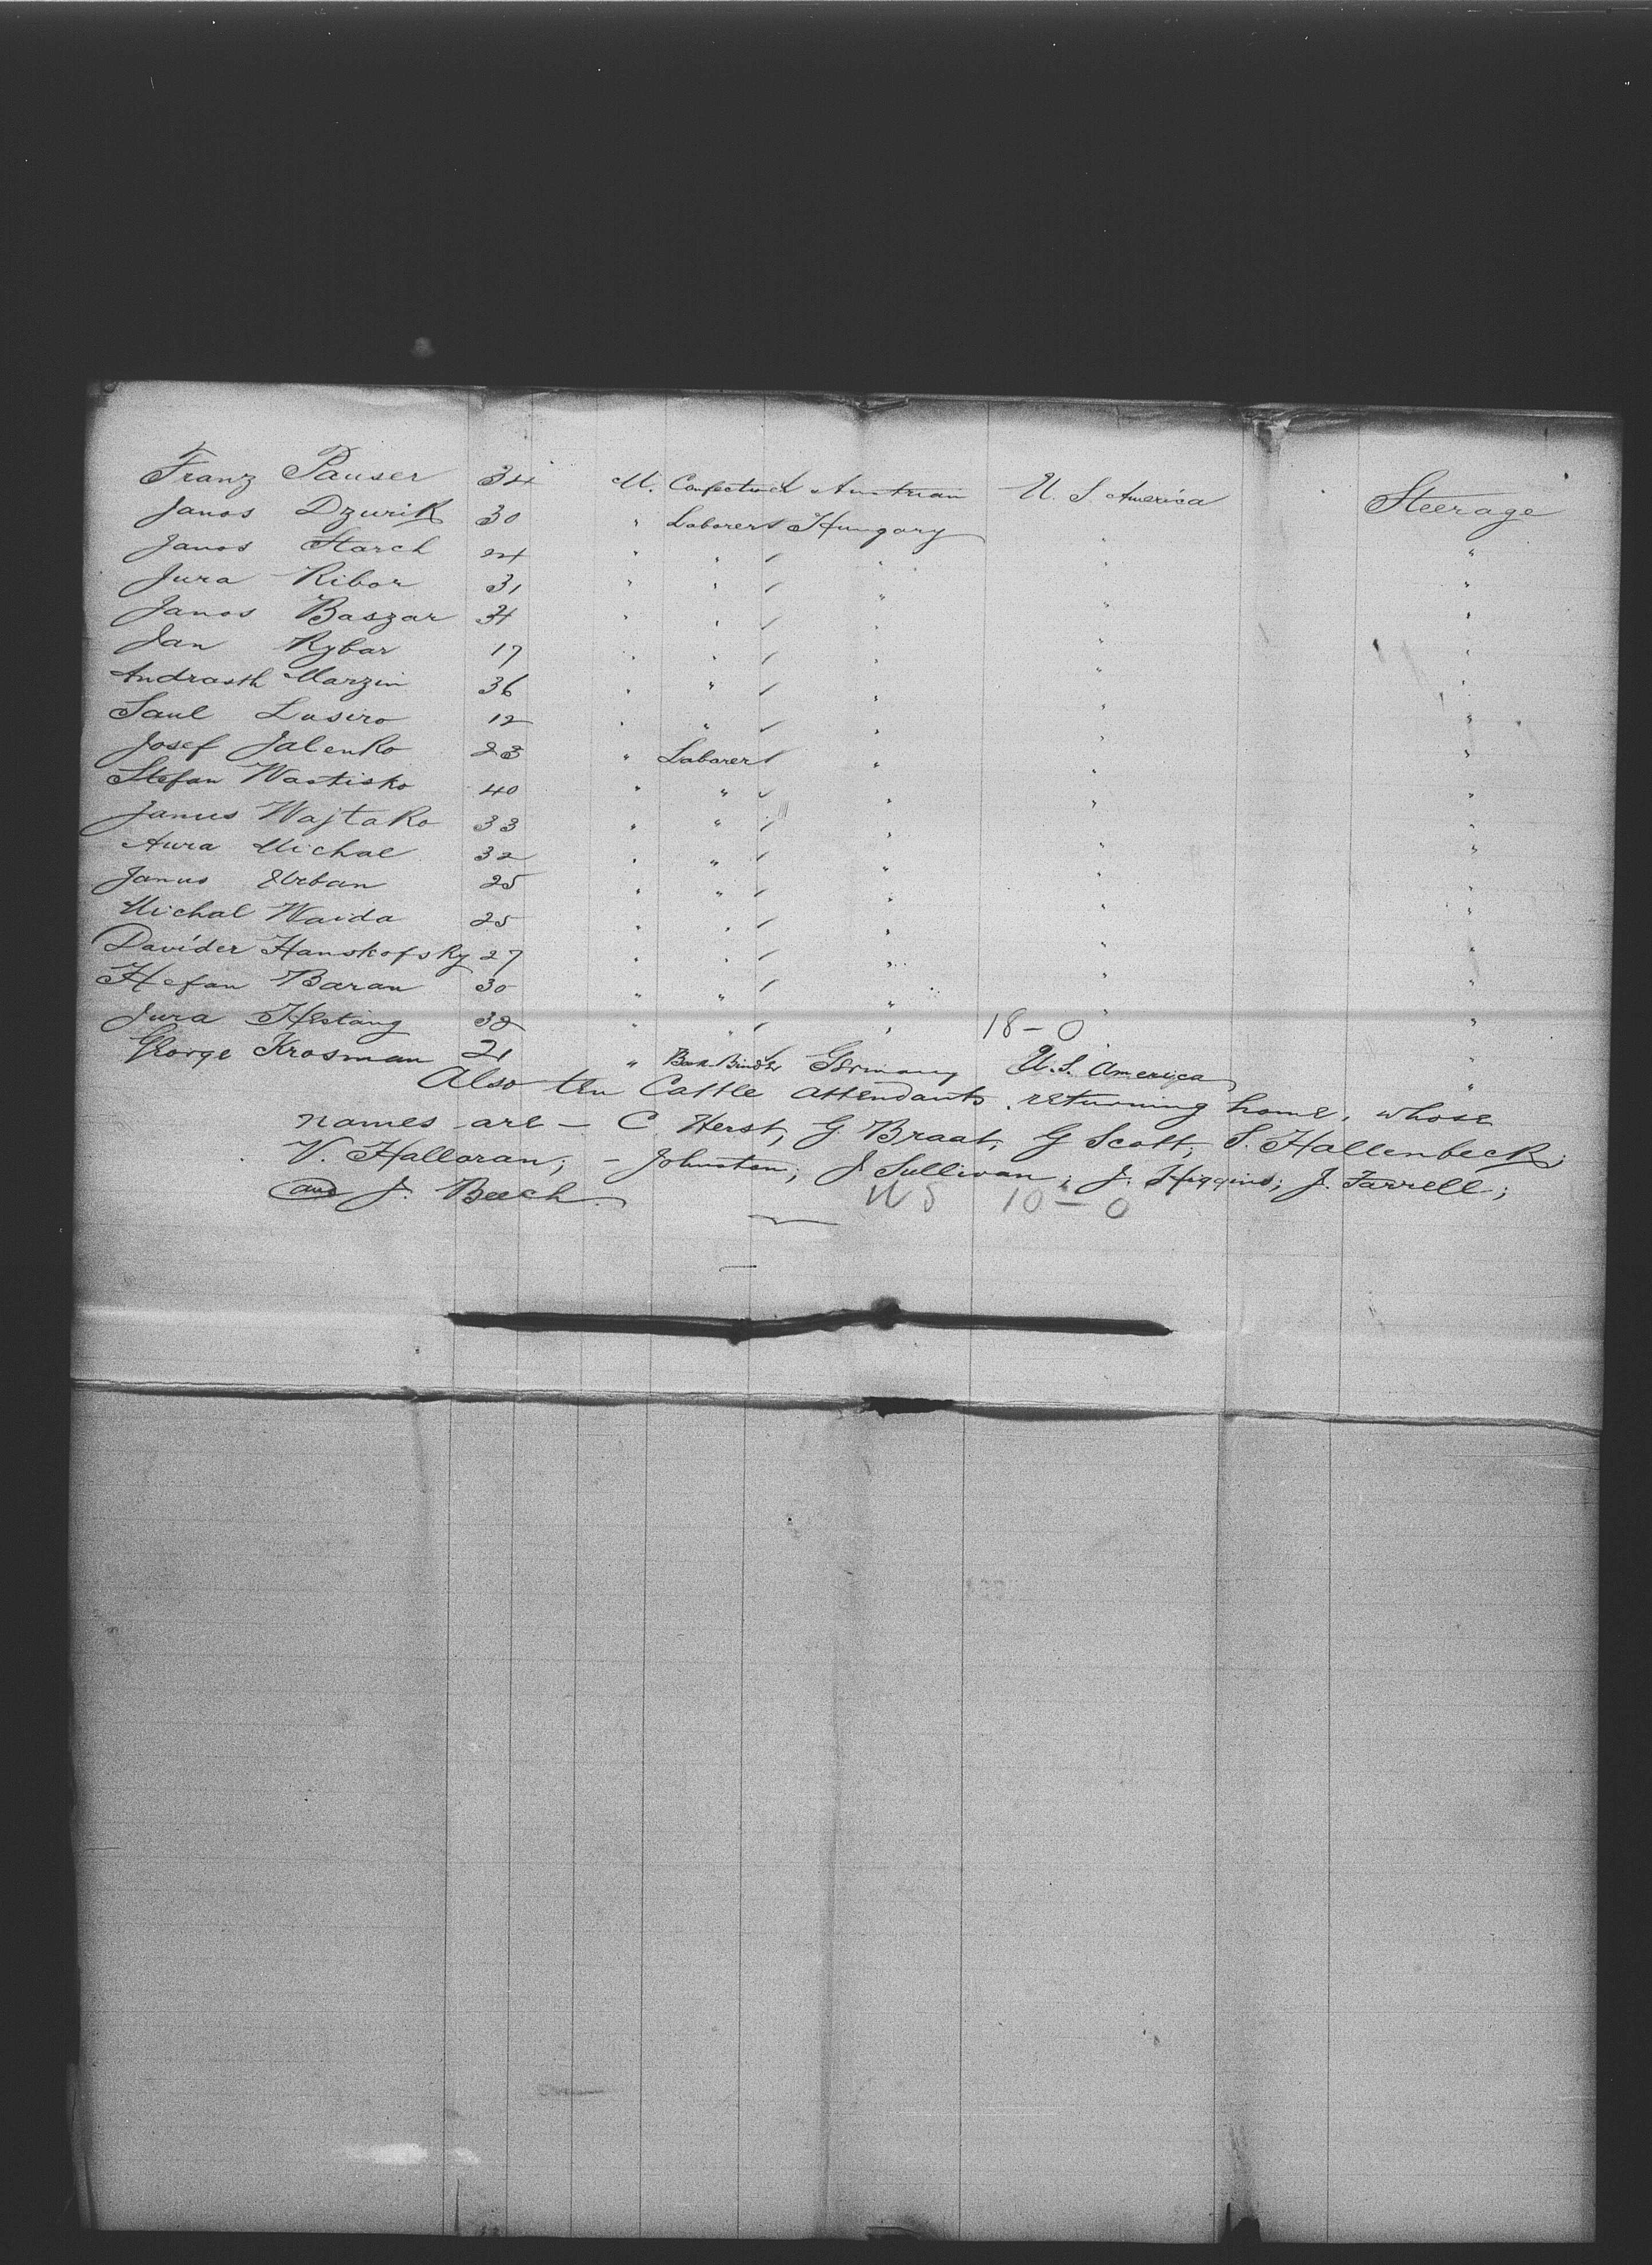 Franz Pauser 34 M. Austrian U. S America Steerage
Janos Dzurik 30 " Laborer Hungary " "
Janos Starch 24 " " " " "
Jura Ribar 31 " " " " "
Janos Baszar 31 " " " " "
Jan Rybar 17 " " " " "
Andrasth Marzin 36 " " " " "
Saul Lusiro 12 " " " " "
Josef Jalenko 23 " Laborer " " "
Stefan Wastisko 40 " " " " "
Janus Wajtako 33 " " " " "
Aura Michal 32 " " " " "
Janus Urban 25 " " " " "
Michal Waida 25 " " " " "
Davider Hanskofsky 27 " " " " "
Stefan Baran 30 " " " " "
Jura 32 " " " 18-0 "
George Krosman 21 " Book Binder Germany U.S. America "
Also ten Cattle attendants returning home, whose
names are — C. Herst, G. Braat, G Scott, S. Hallenbeck;
V. Halloran; - Johnston; J Sullivan; J. Higgins; J. Farrell;
and J. Beech.
US 10-0